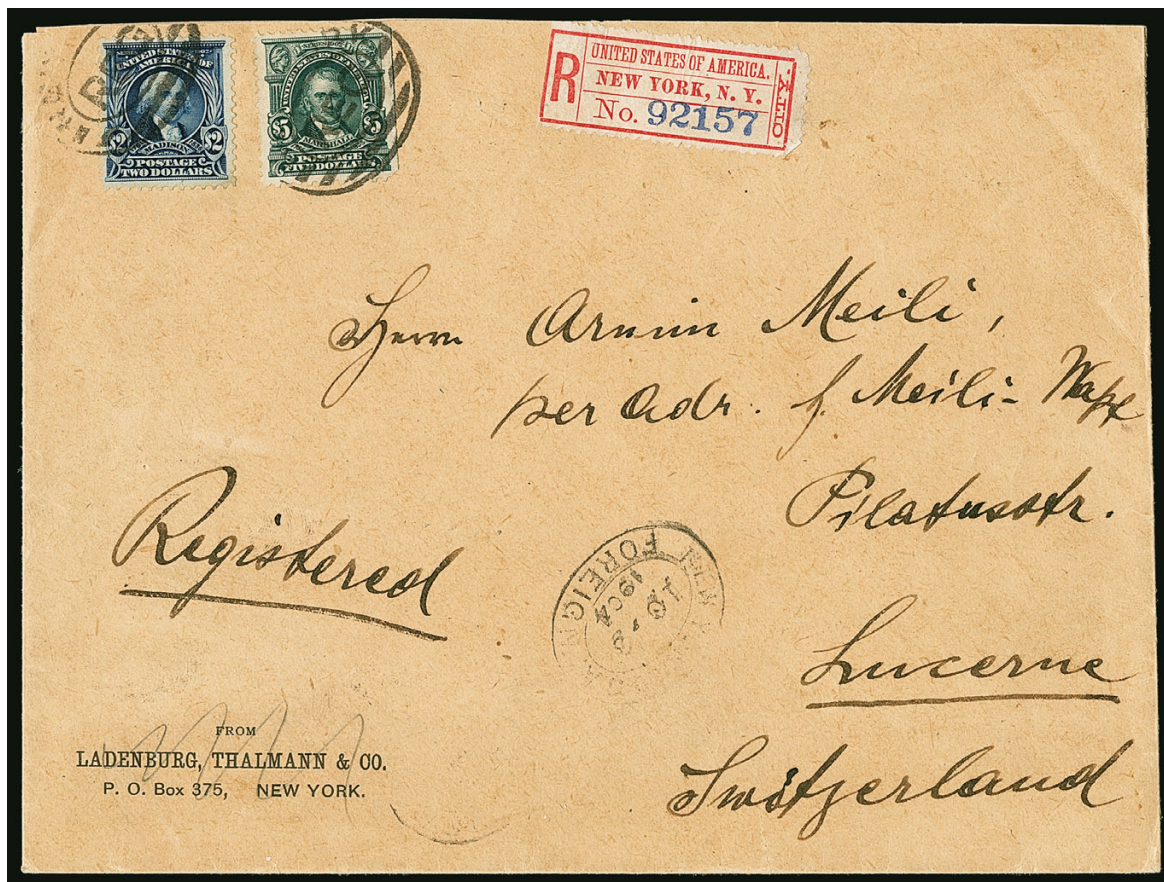 UNITED STATES OF AMERICA
$2 MADISON $2
POSTAGE
TWO DOLLARS
SERIES 1902
UNITED STATES OF AMERICA
$5 MARSHALL $5
POSTAGE
FIVE DOLLARS
R
UNITED STATES OF AMERICA.
NEW YORK, N. Y.
No. 92157
Herrn Armin Meili,
per Adr. f. Meili-Wapf
Pilatusstr.
Lucerne
Switzerland
Registered
FOREIGN
10
190
FROM
LADENBURG, THALMANN & CO.
P. O. Box 375, NEW YORK.